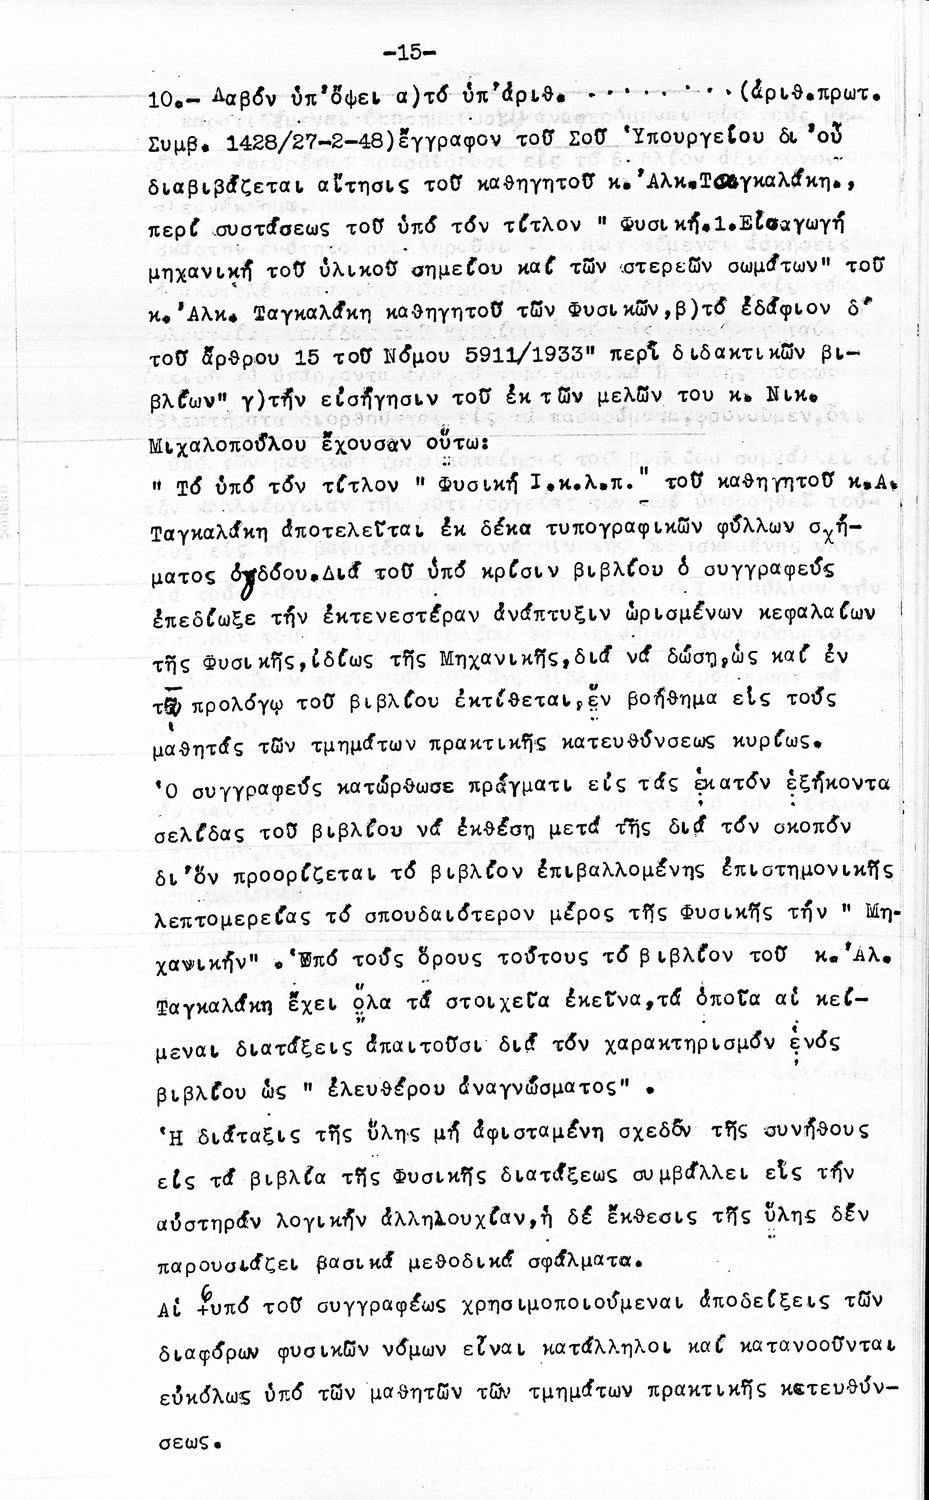 -15-
10.- Λαβόν ὑπ'ὄψει α)τό ὑπ'ἀριθ. ........(ἀριθ.πρωτ.
Συμβ. 1428/27-2-48)ἔγγραφον τοῦ Σοῦ Ὑπουργείου δι'οὗ
διαβιβάζεται αἴτησις τοῦ καθηγητοῦ κ.Ἀλκ.Τσαγκαλάκη.,
περί συστάσεως τοῦ ὑπό τόν τίτλον " Φυσική.1.Εἰσαγωγή
μηχανική τοῦ ὑλικοῦ σημείου καί τῶν στερεῶν σωμάτων" τοῦ
κ.Ἀλκ. Ταγκαλάκη καθηγητοῦ τῶν Φυσικῶν,β)τό ἐδάφιον δ'
τοῦ ἄρθρου 15 τοῦ Νόμου 5911/1933" περί διδακτικῶν βι-
βλίων" γ)τήν εἰσήγησιν τοῦ ἐκ τῶν μελῶν του κ. Νικ.
Μιχαλοπούλου ἔχουσαν οὕτω:
" Τό ὑπό τόν τίτλον " Φυσική Ι.κ.λ.π." τοῦ καθηγητοῦ κ.Α.
Ταγκαλάκη ἀποτελεῖται ἐκ δέκα τυπογραφικῶν φύλλων σχή-
ματος ὀγδόου.Διά τοῦ ὑπό κρίσιν βιβλίου ὁ συγγραφεύς
ἐπεδίωξε τήν ἐκτενεστέραν ἀνάπτυξιν ὡρισμένων κεφαλαίων
τῆς Φυσικῆς,ἰδίως τῆς Μηχανικῆς,διά νά δώση,ὡς καί ἐν
τῷ προλόγῳ τοῦ βιβλίου ἐκτίθεται,ἕν βοήθημα εἰς τούς
μαθητάς τῶν τμημάτων πρακτικῆς κατευθύνσεως κυρίως.
Ὁ συγγραφεύς κατώρθωσε πράγματι εἰς τάς ἑκατόν ἑξήκοντα
σελίδας τοῦ βιβλίου νά ἐκθέση μετά τῆς διά τόν σκοπόν
δι'ὅν προορίζεται τό βιβλίον ἐπιβαλλομένης ἐπιστημονικῆς
λεπτομερείας τό σπουδαιότερον μέρος τῆς Φυσικῆς τήν " Μη-
χανικήν" .Ὑπό τούς ὅρους τούτους τό βιβλίον τοῦ κ.Ἀλ.
Ταγκαλάκη ἔχει ὅλα τά στοιχεῖα ἐκεῖνα,τά ὁποῖα αἱ κεί-
μεναι διατάξεις ἀπαιτοῦσι διά τόν χαρακτηρισμόν ἑνός
βιβλίου ὡς " ἐλευθέρου ἀναγνώσματος" .
Ἡ διάταξις τῆς ὕλης μή ἀφισταμένη σχεδόν τῆς συνήθους
εἰς τά βιβλία τῆς Φυσικῆς διατάξεως συμβάλλει εἰς τήν
αὐστηράν λογικήν ἀλληλουχίαν,ἡ δέ ἔκθεσις τῆς ὕλης δέν
παρουσιάζει βασικά μεθοδικά σφάλματα.
Αἱ ὑπό τοῦ συγγραφέως χρησιμοποιούμεναι ἀποδείξεις τῶν
διαφόρων φυσικῶν νόμων εἶναι κατάλληλοι καί κατανοοῦνται
εὐκόλως ὑπό τῶν μαθητῶν τῶν τμημάτων πρακτικῆς κατευθύν-
σεως.